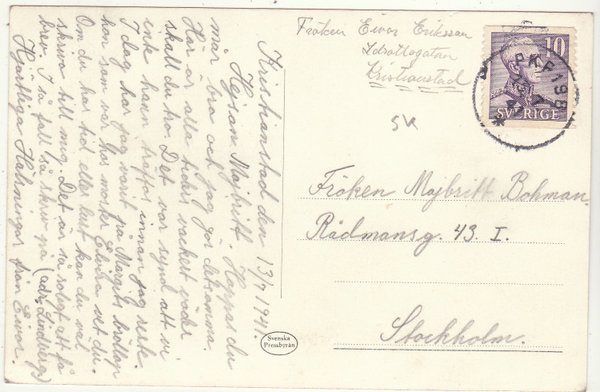 Kristianstad den 13/7 1941.
Hejsan Majbritt. Hoppas du
mår bra och jag gör detsamma.
Här är alla tiders vackert väder
skall du ha. Det var synd att vi
inte hann träffas innan jag reste.
I dag har jag varit på Margits bröllop
han som var hos moster Elvira vet du.
Om du har tid eller lust kan du väl
skriva till mig. Det är så roligt att få
brev. I så fall så skriv på (adr. Lindberg)
Hjärtliga Hälsningar från Eivor.
Fröken Eivor Eriksson
Idrottsgatan
Kristianstad
SK
10
SVERIGE
PKP 198
7
41
Fröken Majbritt Bohman
Rådmansg. 43 I.
Stockholm.
Svenska
Pressbyrån